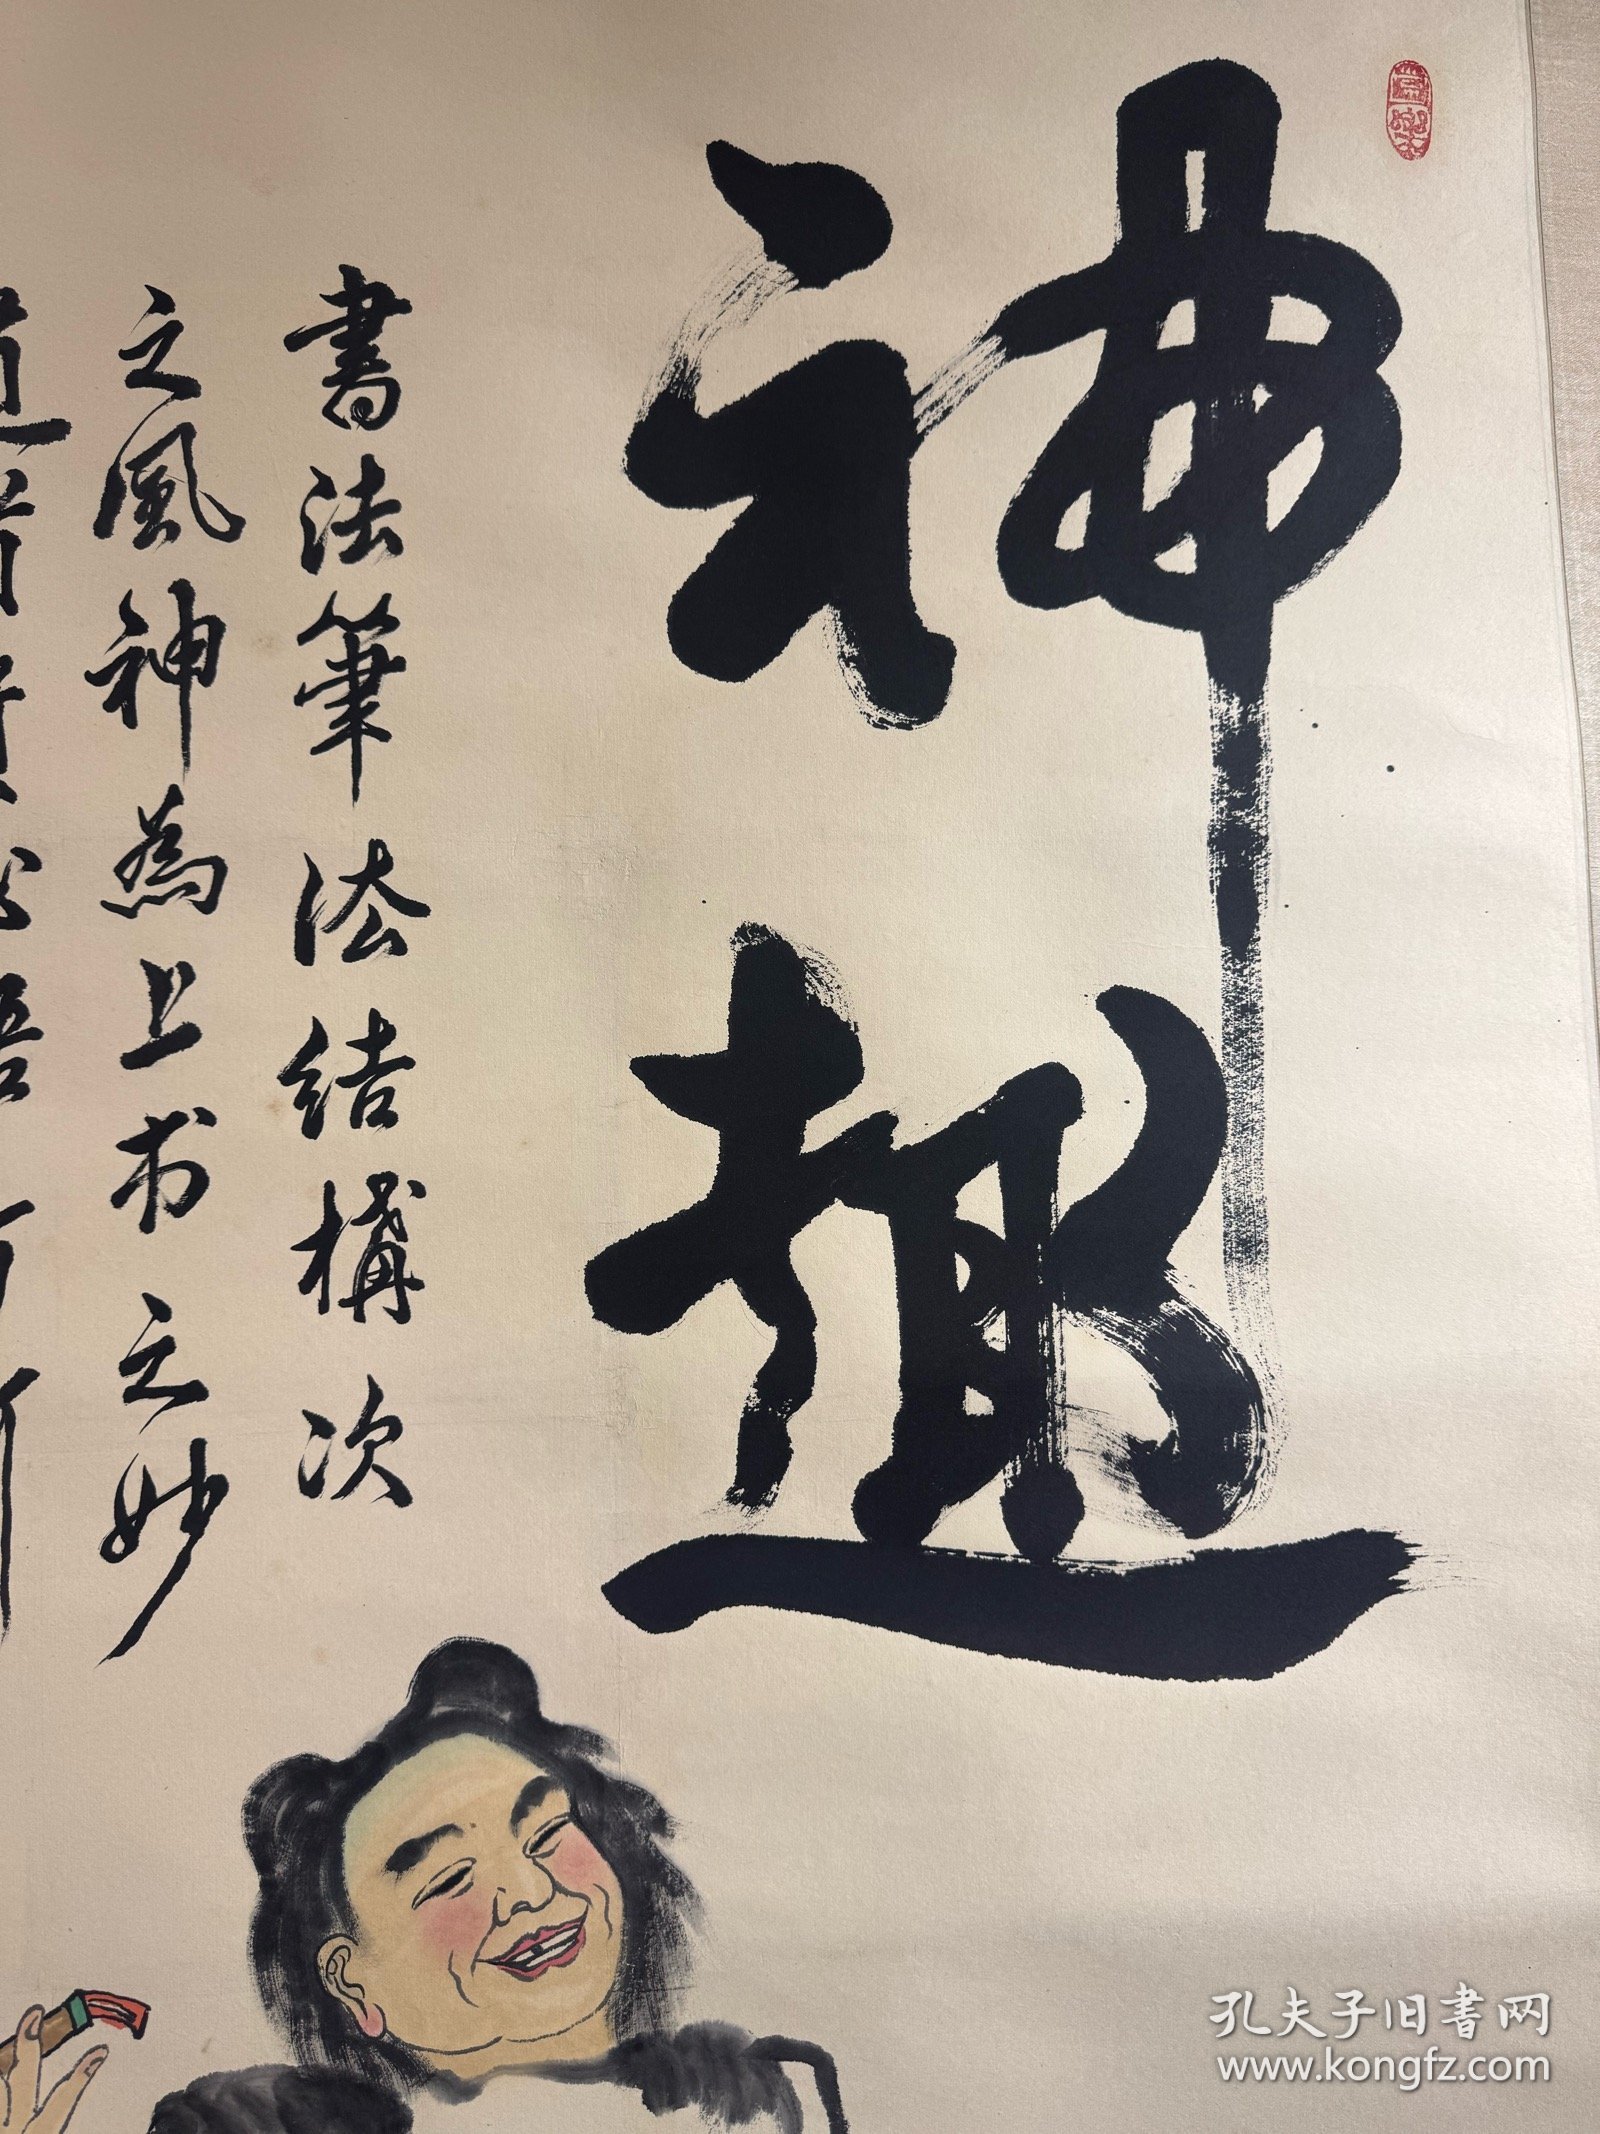 神趣
書法筆法結構次
之風神為上书之妙
道
孔夫子旧書网
www.kongfz.com